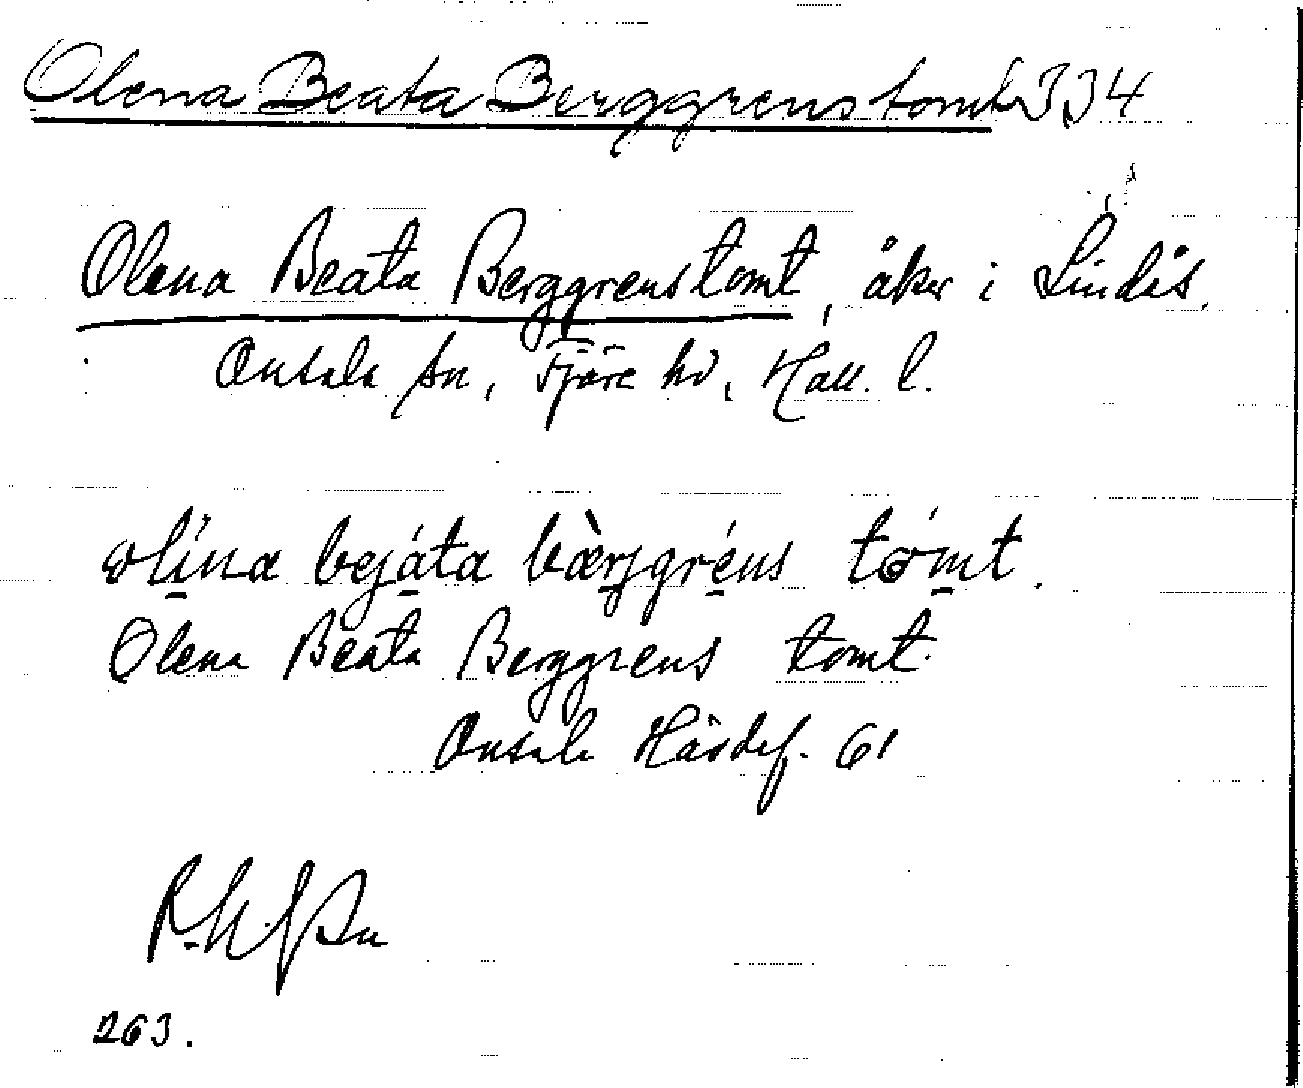 Olena Beata Berggrens tomt 334
Olena Beata Berggrens tomt, åker i Lindås.
Onsala sn, Fjäre hd, Hall. l.
olína bejáta bàrjgréns tómt.
Olena Beata Berggrens tomt.
Onsala Häsdef. 61
263.